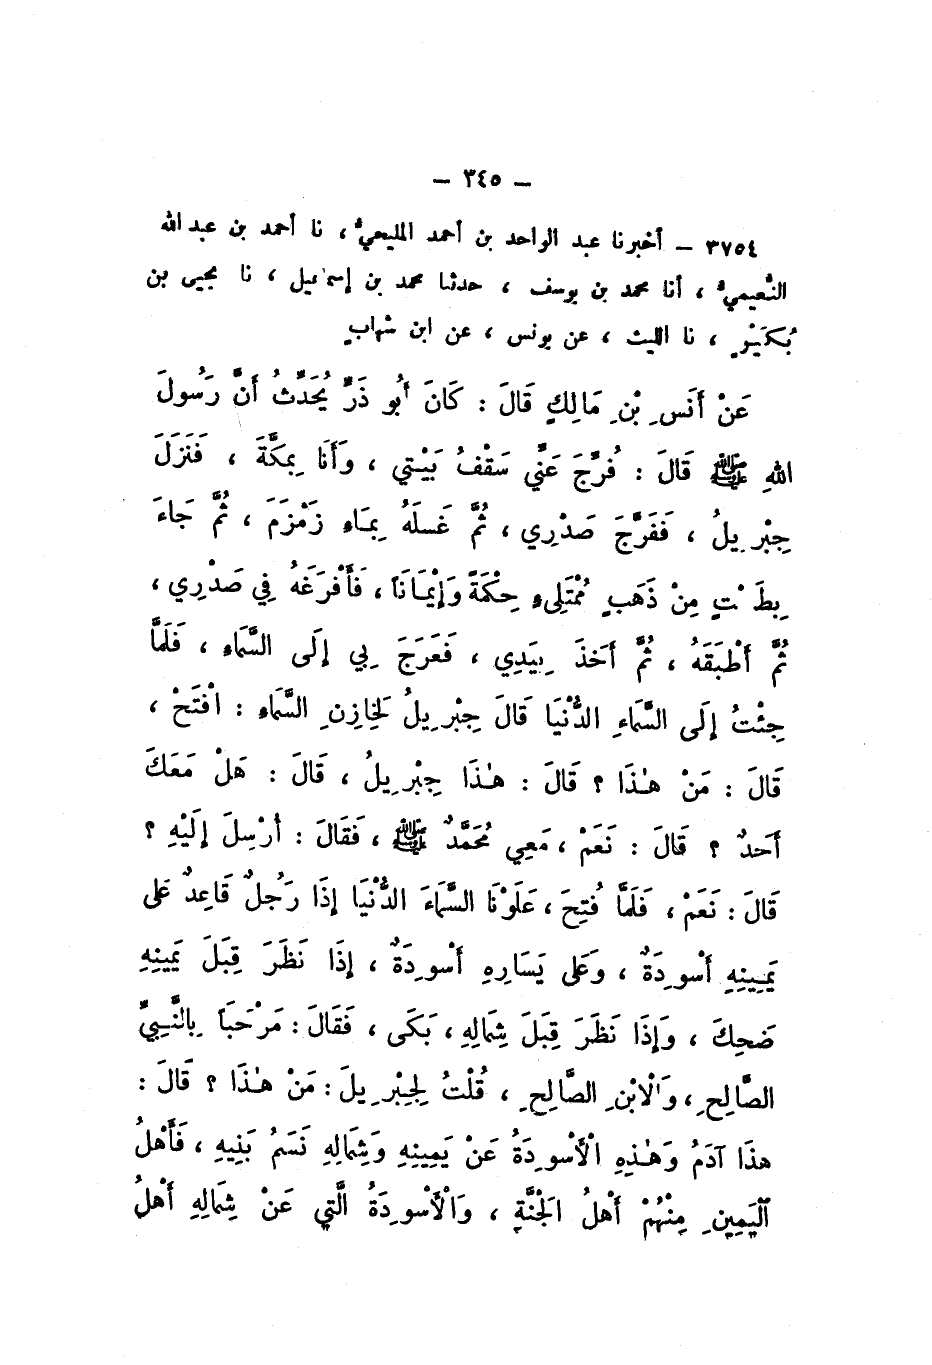 — ٣٤٥ —
٣٧٥٤ — أخبرنا عبد الواحد بن أحمد المليحيُّ ، نا أحمد بن عبد الله
النُّعيميُّ ، أنا محمد بن يوسف ، حدثنا محمد بن إسماعيل ، نا يحيى بن
بُكَيْرٍ ، نا الليث ، عن يونس ، عن ابن شهابٍ
عَنْ أَنَسِ بْنِ مَالِكٍ قَالَ : كَانَ أَبُو ذَرٍّ يُحَدِّثُ أَنَّ رَسُولَ
اللهِ ﷺ قَالَ : فُرِّجَ عَنِّي سَقْفُ بَيْتِي ، وَأَنَا بِمَكَّةَ ، فَنَزَلَ
جِبْرِيلُ ، فَفَرَّجَ صَدْرِي ، ثُمَّ غَسَلَهُ بِمَاءِ زَمْزَمَ ، ثُمَّ جَاءَ
بِطَسْتٍ مِنْ ذَهَبٍ مُمْتَلِىءٍ حِكْمَةً وَإِيْمَانَاً ، فَأَفْرَغَهُ فِي صَدْرِي ،
ثُمَّ أَطْبَقَهُ ، ثُمَّ أَخَذَ بِيَدِي ، فَعَرَجَ بِي إِلَى السَّمَاءِ ، فَلَمَّا
جِئْتُ إِلَى السَّمَاءِ الدُّنْيَا قَالَ جِبْرِيلُ لِخَازِنِ السَّمَاءِ : افْتَحْ ،
قَالَ : مَنْ هٰذَا ؟ قَالَ : هٰذَا جِبْرِيلُ ، قَالَ : هَلْ مَعَكَ
أَحَدٌ ؟ قَالَ : نَعَمْ ، مَعِي مُحَمَّدٌ ﷺ ، فَقَالَ : أُرْسِلَ إِلَيْهِ ؟
قَالَ : نَعَمْ ، فَلَمَّا فُتِحَ ، عَلَوْنَا السَّمَاءَ الدُّنْيَا إِذَا رَجُلٌ قَاعِدٌ عَلى
يَمِينِهِ أَسْوِدَةٌ ، وَعَلى يَسَارِهِ أَسْوِدَةٌ ، إِذَا نَظَرَ قِبَلَ يَمِينِهِ
ضَحِكَ ، وَإِذَا نَظَرَ قِبَلَ شِمَالِهِ ، بَكَى ، فَقَالَ : مَرْحَبَاً بِالنَّبِيِّ
الصَّالِحِ ، وَالْابْنِ الصَّالِحِ ، قُلْتُ لِجِبْرِيلَ : مَنْ هٰذَا ؟ قَالَ :
هذَا آدَمُ وَهٰذِهِ الْأَسْوِدَةُ عَنْ يَمِينِهِ وَشِمَالِهِ نَسَمُ بَنِيهِ ، فَأَهْلُ
الْيَمِينِ مِنْهُمْ أَهْلُ الجَنَّةِ ، وَالْأَسْوِدَةُ الَّتِي عَنْ شِمَالِهِ أَهْلُ